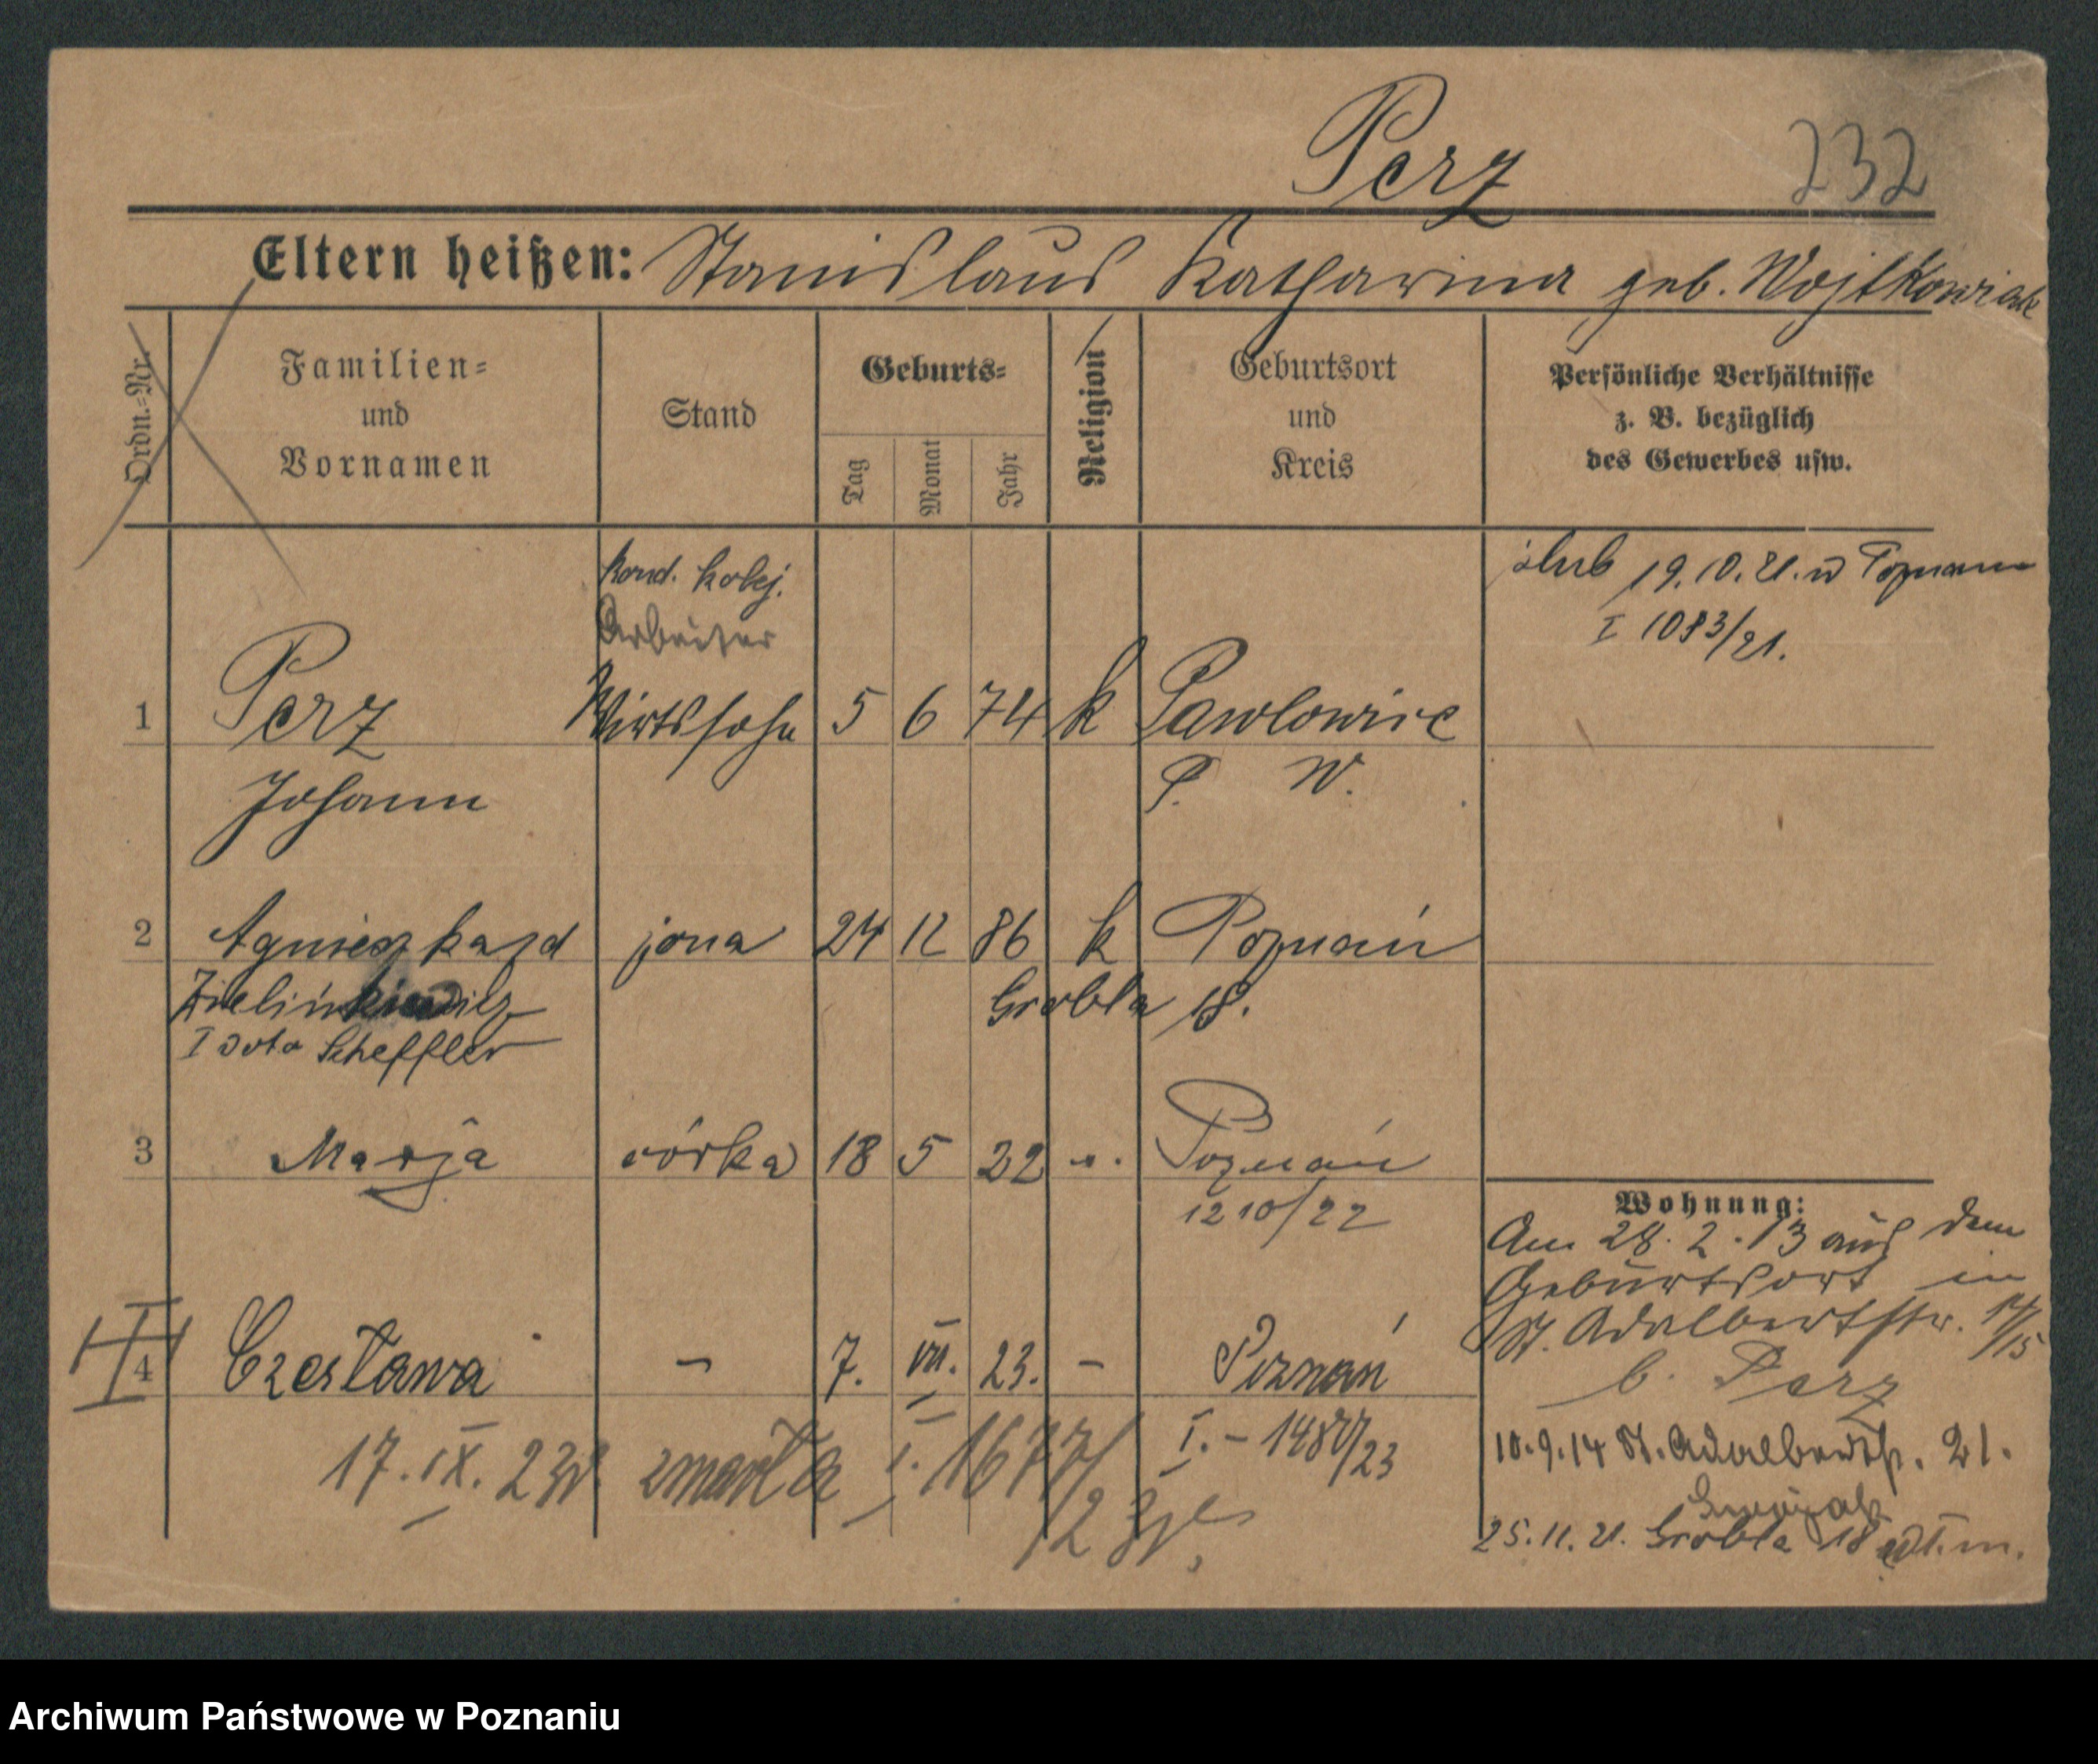 Perz 232
Eltern heißen: Stanislaus Katharina geb. Wojtkowiak
Ordn.-Nr.
Familien-
und
Vornamen
Stand
Geburts-
Tag
Monat
Jahr
Religion
Geburtsort
und
Kreis
Persönliche Verhältnisse
z. B. bezüglich
des Gewerbes usw.
kond. kolej.
Arbeiter
ślub 19.10.21. w Poznaniu
I 1083/21.
1 Perz Wirtssohn 5 6 74 k Pawlowice
Johann P. W.
2 Agnieszka zd żona 24 12 86 k Poznań
Zielinkiewicz Grobla 18.
I voto Scheffler
3 Marja córka 18 5 22 Poznań
1210/22
Wohnung:
Am 28.2.13 aus dem
Geburtsort in
St. Adalbertstr. 14/15
b. Perz
II
4 Czesława - 7. VII. 23. - Poznań
I. - 1487/23
17.IX.23 zmarła I. 1677/23
10.9.14 St. Adalbertstr. 21.
25.11.21. Grobla 18
Archiwum Państwowe w Poznaniu